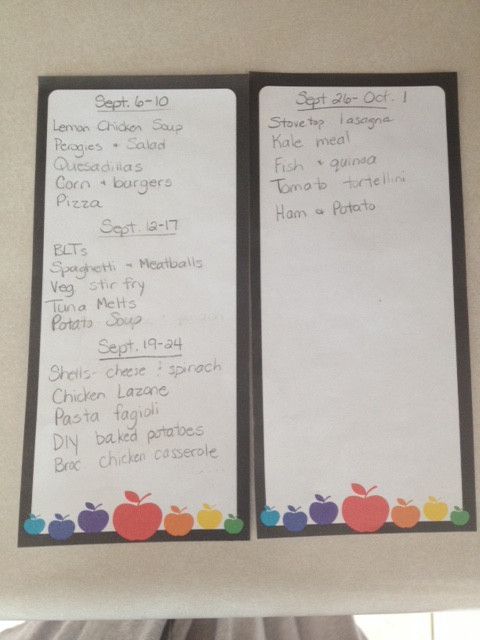 Sept. 6-10
Lemon Chicken Soup
Perogies + Salad
Quesadillas
Corn + burgers
Pizza
Sept. 12-17
BLTs
Spaghetti + Meatballs
Veg stir fry
Tuna Melts
Potato Soup
Sept. 19-24
Shells- cheese : spinach
Chicken Lazone
Pasta fagioli
DIY baked potatoes
Broc chicken casserole
Sept 26- Oct. 1
Stove top lasagna
Kale meal
Fish + quinoa
Tomato tortellini
Ham + Potato